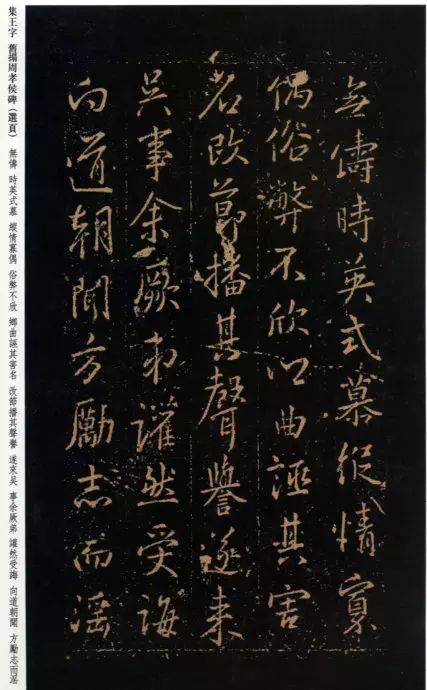 無儔時英式慕縱情寡
偶俗弊不欣鄉曲誣其害
名改節播其聲譽遂来
吳事余厥弟讙然受誨
向道朝聞方勵志而淫
集王字 舊搨周孝侯碑(選頁) 無儔 時英式慕 縱情寡偶 俗弊不欣 鄉曲誣其害名 改節播其聲譽 遂來吳 事余厥弟 讙然受誨 向道朝聞 方勵志而淫